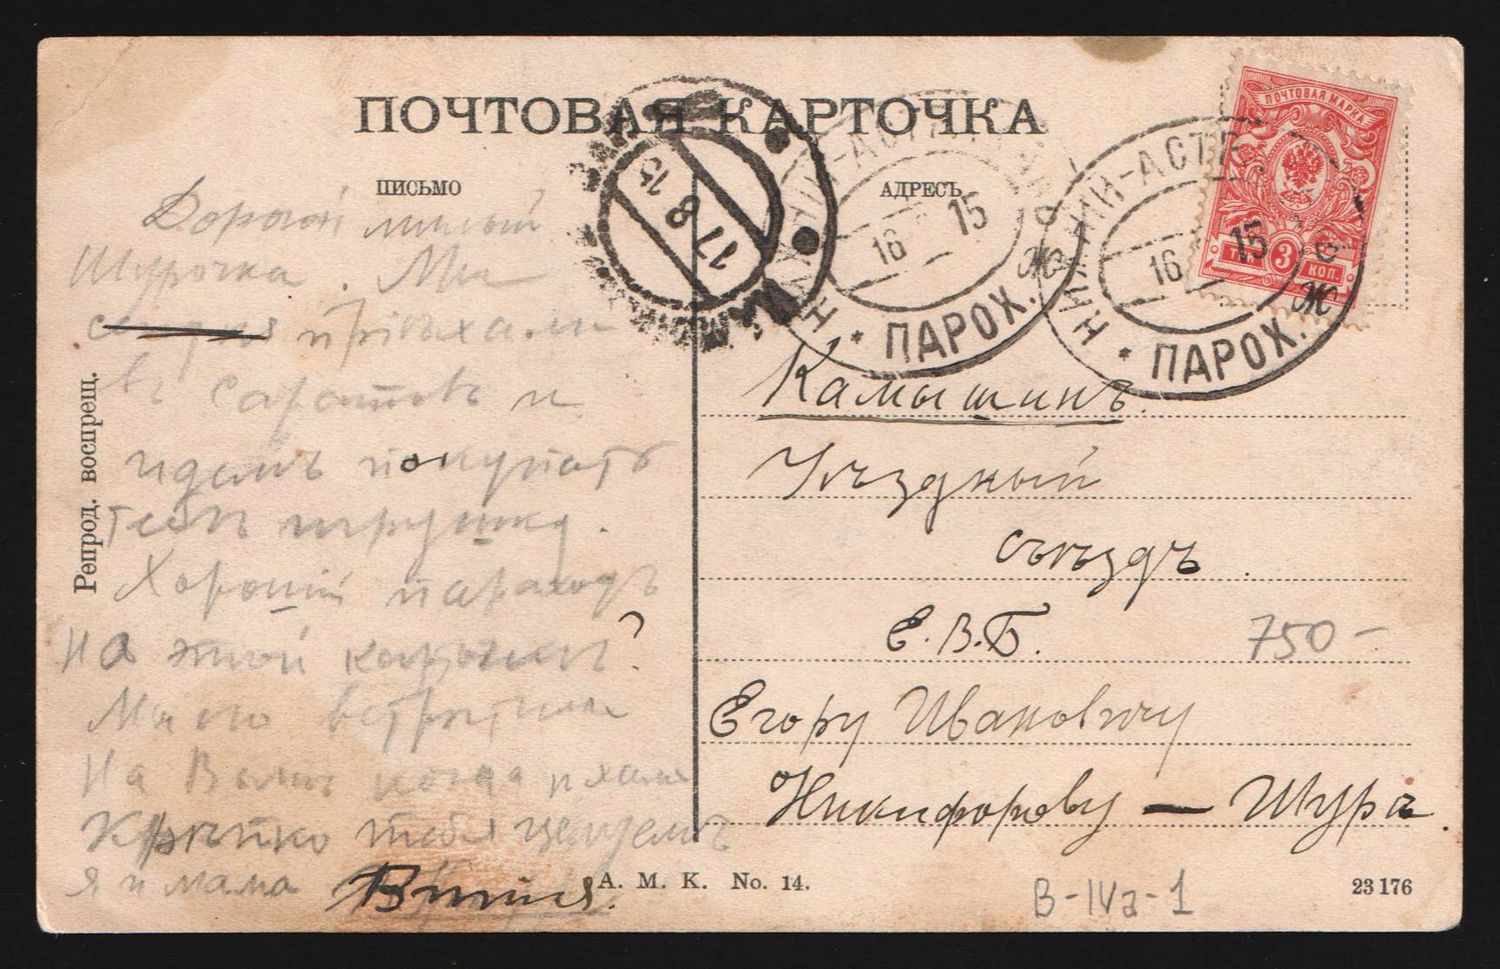 ПОЧТОВАЯ КАРТОЧКА
ПИСЬМО
АДРЕСЪ
Дорогой милый
Шурочка. Мы
пріѣхали
въ Саратовъ и
идемъ покупать
тебѣ игрушку.
Хорошій пароходъ
на этой карточкѣ?
Мы его встрѣтили
на Волгѣ когда ѣхали
Крѣпко тебя цѣлуемъ
я и мама
Витя.
Репрод. воспрещ.
17 8 15
НИЖНИН-АСТР
16 15
Ж
* ПАРОХ.
НИЖНИН-АСТР
16 15
Ж
* ПАРОХ.
ПОЧТОВАЯ МАРКА
3 КОП.
Камышинъ.
Уѣздный
съѣздъ
Е.В.Б.
750-
Егору Ивановичу
Никифорову — Шурѣ.
А. М. К. No. 14.
В-IVа-1
23 176